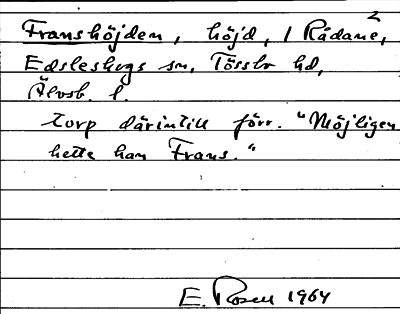 Franshöjden, höjd, / Rådane²,
Edsleskogs sn, Tössbo hd,
Älvsb. l.
torp därintill förr. "Möjligen
hette han Frans."
E. Rosell 1964